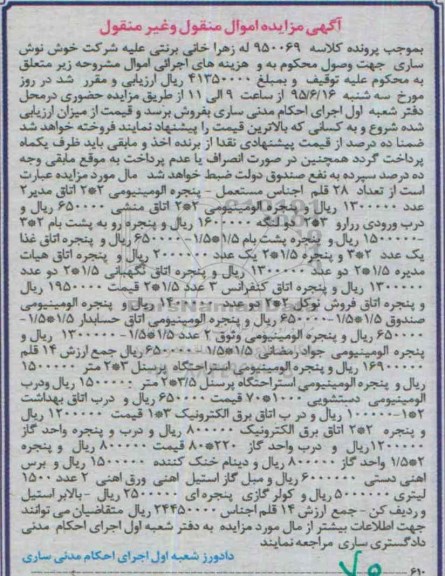 آگهی مزایده اموال منقول وغیر منقول
بموجب پرونده کلاسه ۹۵۰۰۶۹ له زهرا خانی برنتی علیه شرکت خوش نوش
ساری جهت وصول محکوم به و هزینه های اجرائی اموال مشروحه زیر متعلق
به محکوم علیه توقیف و بمبلغ ۴۱۳۵۰۰۰۰ ریال ارزیابی و مقرر شد در روز
مورخ سه شنبه ۹۵/۶/۱۶ از ساعت ۹ الی ۱۱ از طریق مزایده حضوری درمحل
دفتر شعبه اول اجرای احکام مدنی ساری بفروش برسد و قیمت از میزان ارزیابی
شده شروع و به کسانی که بالاترین قیمت را پیشنهاد نمایند فروخته خواهد شد
ضمنا ده درصد از قیمت پیشنهادی نقدا از برنده اخذ و مابقی باید ظرف یکماه
پرداخت گردد همچنین در صورت انصراف یا عدم پرداخت به موقع مابقی وجه
ده درصد سپرده به نفع صندوق دولت ضبط خواهد شد مال مورد مزایده عبارت
است از تعداد ۲۸ قلم اجناس مستعمل - پنجره الومینیومی ۲*۲ اتاق مدیر۲
عدد ۱۳۰۰۰۰۰ ریال و پنجره الومینیومی ۲*۲ اتاق منشی ۶۵۰۰۰۰ ریال و
درب ورودی رزارو ۲*۲ دو لنگه ۱۶۰۰۰۰۰ ریال و پنجره رو به پشت بام ۲*۳
-۱۵۰۰۰۰۰ ریال و پنجره پشت بام ۱/۵*۱/۵ -۶۵۰۰۰۰ ریال و پنجره اتاق غذا
یک عدد ۲*۳ و پنجره ۱/۵*۲ یک عدد ۲۰۰۰۰۰۰ ریال و پنجره اتاق هیات
مدیره ۱/۵*۲ دو عدد ۱۳۰۰۰۰۰ ریال و پنجره اتاق نگهبانی ۱/۵*۲ دو عدد
۱۳۰۰۰۰۰ ریال و پنجره اتاق کنفرانس ۳ عدد ۱/۵*۲ قیمت ۱۹۵۰۰۰۰ ریال
و پنجره اتاق فروش نوکل ۲*۲ دو عدد ۱۴۰۰۰۰۰ ریال و پنجره الومینیومی
صندوق ۱/۵*۱/۵-۶۵۰۰۰۰ ریال و پنجره الومینیومی اتاق حسابدار ۱/۵*۱/۵-
۶۵۰۰۰۰ ریال و پنجره الومینیومی وثوق ۲ عدد ۱/۵*۱/۵-۱۳۰۰۰۰۰ ریال و
پنجره الومینیومی جواد رمضانی ۱/۵*۱/۵-۶۵۰۰۰۰ ریال جمع ارزش ۱۴ قلم
ریال و پنجره الومینیومی استراحتگاه پرسنل ۳*۲ متر ۱۵۰۰۰۰۰
ریال و پنجره الومینیومی استراحتگاه پرسنل ۳/۵*۲ متر ۱۵۰۰۰۰۰ ریال ودرب
الومینیومی دستشویی ۱۰۰*۷۰ قیمت ۶۵۰۰۰۰ ریال و درب اتاق بهداشت
۲*۱-۱۰۰۰۰۰۰ ریال و در ب اتاق برق الکترونیک ۲*۱ قیمت ۱۲۰۰۰۰۰ ریال
و پنجره ۲*۲ اتاق برق الکترونیک ۸۰۰۰۰۰ ریال و درب و پنجره واحد گاز
۱۲۰۰۰۰۰ ریال و درب واحد گاز ۲۲۰*۸۰ قیمت ۸۰۰۰۰۰ ریال و پنجره
۱/۵*۲ واحد گاز ۸۰۰۰۰۰ ریال و دینام خنک کننده ۱۵۰۰۰۰۰ ریال و برس
اهنی دستی ۶۰۰۰۰۰۰ ریال و مبل گاز استیل اهنی ورق اهنی ۲ عدد ۱۵۰۰
لیتری ۵۰۰۰۰۰۰ ریال و کولر گازی پنجره ای ۲۵۰۰۰۰۰ ریال - بالابر استیل
و ردیف کن - جمع ارزش ۱۴ قلم اجناس ۲۴۴۵۰۰۰۰ ریال متقاضیان می توانند
جهت اطلاعات بیشتر از مال مورد مزایده به دفتر شعبه اول اجرای احکام مدنی
دادگستری ساری مراجعه نمایند
دادورز شعبه اول اجرای احکام مدنی ساری
۶۱۰
۷۵